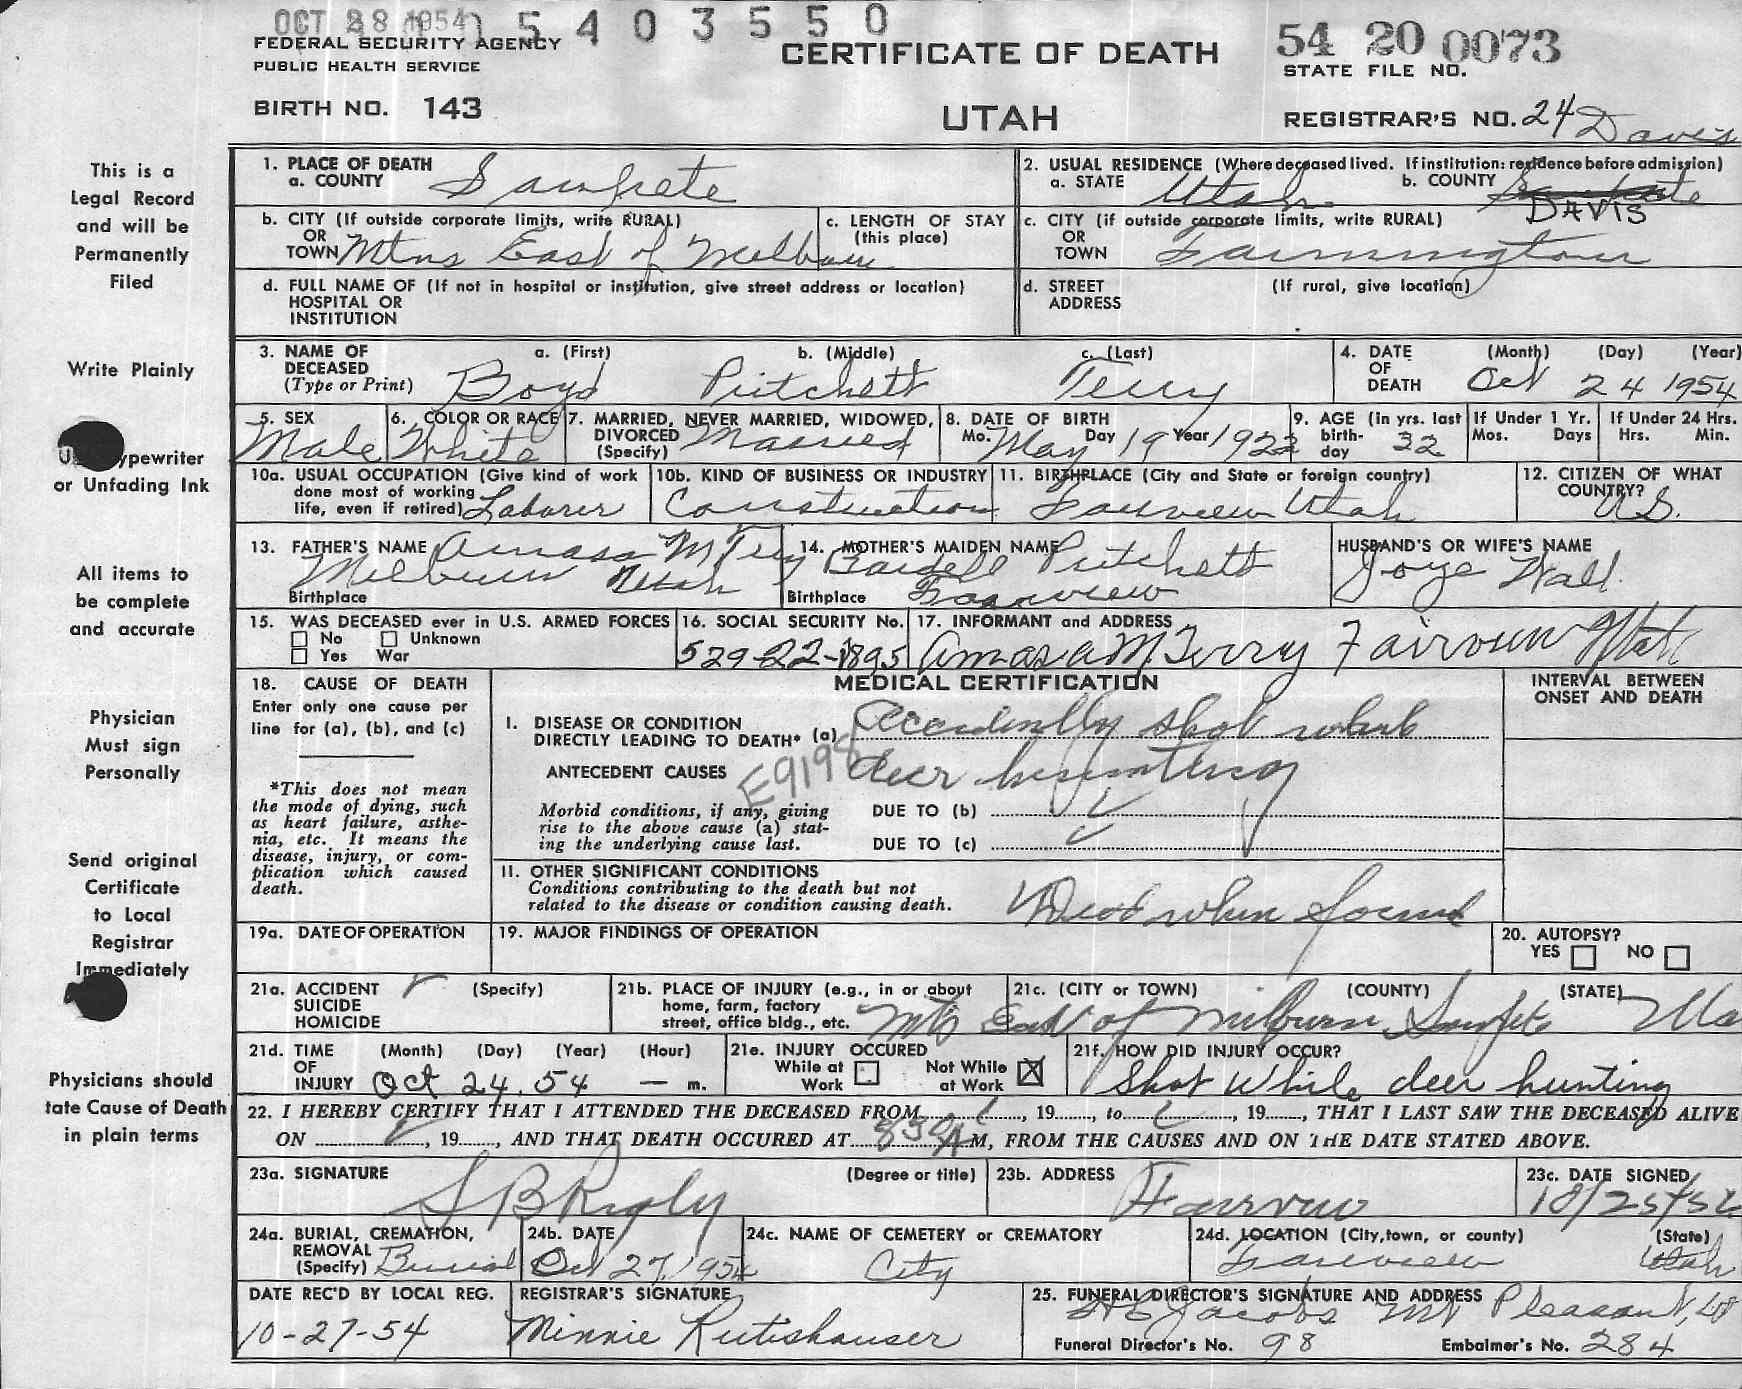 OCT 28 1954 5 4 0 3 5 5 0
FEDERAL SECURITY AGENCY
PUBLIC HEALTH SERVICE
BIRTH NO. 143
CERTIFICATE OF DEATH
UTAH
54 20 0073
STATE FILE NO.
REGISTRAR'S NO. 24 Davis
This is a
Legal Record
and will be
Permanently
Filed
Write Plainly
ypewriter
or Unfading Ink
All items to
be complete
and accurate
Physician
Must sign
Personally
Send original
Certificate
to Local
Registrar
Immediately
Physicians should
tate Cause of Death
in plain terms
1. PLACE OF DEATH
a. COUNTY Sanpete
2. USUAL RESIDENCE (Where deceased lived. If institution: residence before admission)
a. STATE Utah b. COUNTY Sanpete DAVIS
b. CITY (If outside corporate limits, write RURAL)
OR
TOWN Mtns East of Melburn
c. LENGTH OF STAY
(this place)
c. CITY (if outside corporate limits, write RURAL)
OR
TOWN Farmington
d. FULL NAME OF (If not in hospital or institution, give street address or location)
HOSPITAL OR
INSTITUTION
d. STREET (If rural, give location)
ADDRESS
3. NAME OF DECEASED (Type or Print)
a. (First) b. (Middle) c. (Last)
Boyd Pritchett Terry
4. DATE OF DEATH (Month) (Day) (Year)
Oct 24 1954
5. SEX
Male
6. COLOR OR RACE
White
7. MARRIED, NEVER MARRIED, WIDOWED,
DIVORCED (Specify) Married
8. DATE OF BIRTH
Mo. May Day 19 Year 1922
9. AGE (in yrs. last birth-day 32
If Under 1 Yr.
Mos. Days
If Under 24 Hrs.
Hrs. Min.
10a. USUAL OCCUPATION (Give kind of work
done most of working
life, even if retired) Laborer
10b. KIND OF BUSINESS OR INDUSTRY
Construction
11. BIRTHPLACE (City and State or foreign country)
Fairview Utah
12. CITIZEN OF WHAT
COUNTRY? U.S.
13. FATHER'S NAME Amasa M Terry
Milburn Utah
Birthplace
14. MOTHER'S MAIDEN NAME
Pritchett
Birthplace Fairview
HUSBAND'S OR WIFE'S NAME
Joye Wall
15. WAS DECEASED ever in U.S. ARMED FORCES
No Unknown
Yes War
16. SOCIAL SECURITY No.
529-22-1895
17. INFORMANT and ADDRESS
Amasa M Terry Fairview Utah
18. CAUSE OF DEATH
Enter only one cause per
line for (a), (b), and (c)
*This does not mean
the mode of dying, such
as heart failure, asthe-
nia, etc. It means the
disease, injury, or com-
plication which caused
death.
MEDICAL CERTIFICATION
I. DISEASE OR CONDITION
DIRECTLY LEADING TO DEATH* (a) Accidently shot while
deer hunting
ANTECEDENT CAUSES
E9198
Morbid conditions, if any, giving
rise to the above cause (a) stat-
ing the underlying cause last.
DUE TO (b)
DUE TO (c)
INTERVAL BETWEEN
ONSET AND DEATH
11. OTHER SIGNIFICANT CONDITIONS
Conditions contributing to the death but not
related to the disease or condition causing death.
Dead when found
19a. DATE OF OPERATION
19. MAJOR FINDINGS OF OPERATION
20. AUTOPSY?
YES NO
21a. ACCIDENT (Specify)
SUICIDE
HOMICIDE
21b. PLACE OF INJURY (e.g., in or about
home, farm, factory
street, office bldg., etc.
21c. (CITY or TOWN) (COUNTY) (STATE)
Mt's East of Milburn Sanpete Uta
21d. TIME OF INJURY (Month) (Day) (Year) (Hour)
Oct 24. 54 — m.
21e. INJURY OCCURED
While at Work
Not While at Work X
21f. HOW DID INJURY OCCUR?
Shot while deer hunting
22. I HEREBY CERTIFY THAT I ATTENDED THE DECEASED FROM, 19, to, 19, THAT I LAST SAW THE DECEASED ALIVE
ON, 19, AND THAT DEATH OCCURED AT 830 A M, FROM THE CAUSES AND ON THE DATE STATED ABOVE.
23a. SIGNATURE (Degree or title)
S B Rigby
23b. ADDRESS
Fairview
23c. DATE SIGNED
10/25/54
24a. BURIAL, CREMATION,
REMOVAL
(Specify) Burial
24b. DATE
Oct 27, 1954
24c. NAME OF CEMETERY or CREMATORY
City
24d. LOCATION (City, town, or county) (State)
Fairview Utah
DATE REC'D BY LOCAL REG.
10-27-54
REGISTRAR'S SIGNATURE
Minnie Rutishauser
25. FUNERAL DIRECTOR'S SIGNATURE AND ADDRESS
Jacobs Mt Pleasant, Ut
Funeral Director's No. 98 Embalmer's No. 284